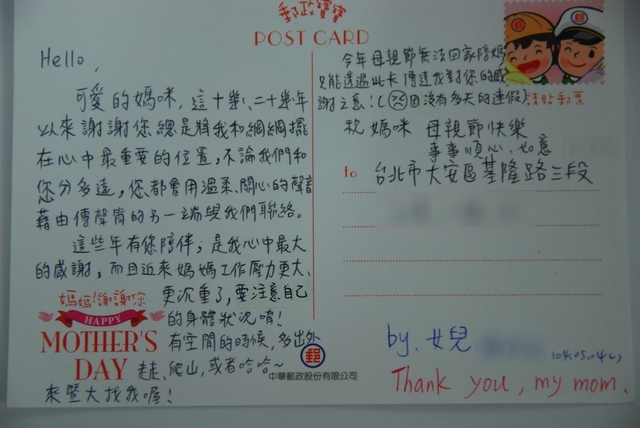 郵政寶寶
POST CARD
Hello,
可愛的媽咪，這十幾、二十幾年
以來謝謝您總是將我和綱綱擺
在心中最重要的位置，不論我們和
您分多遠，您都會用溫柔、關心的聲音
藉由傳聲筒的另一端與我們聯絡。
這些年有您陪伴，是我心中最大
的感謝，而且近來媽媽工作壓力更大、
更沉重了，要注意自己
的身體狀況唷!
有空閒的時候，多出外
走走、爬山，或者哈哈~
來暨大找我喔!
媽媽!謝謝您
HAPPY
MOTHER'S
DAY
郵
中華郵政股份有限公司
今年母親節無法回家陪媽
只能透過此卡傳達我對您的感
謝之意!(因沒有多天的連假)
請貼郵票
祝媽咪 母親節快樂
事事順心、如意
to 台北市大安區基隆路三段
by. 女兒
104.05.04(一)
Thank you, my mom.